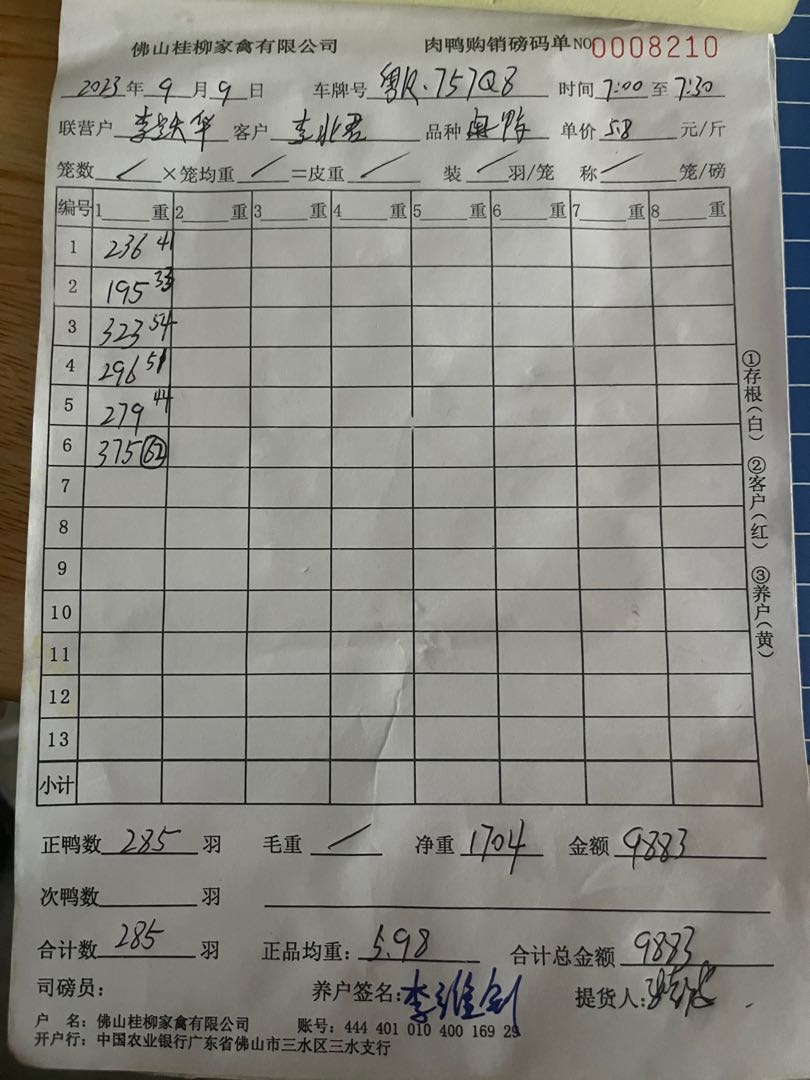 佛山桂柳家禽有限公司 肉鸭购销磅码单 NO 0008210
2023年9月9日 车牌号 粤R·757Q8 时间 7:00 至 7:30
联营户 华 客户 李 君 品种 肉鸭 单价 5.8 元/斤
笼数 / ×笼均重 / =皮重 / 装 / 羽/笼 称 / 笼/磅
编号 1 重 2 重 3 重 4 重 5 重 6 重 7 重 8 重
1 236 41
2 195 33
3 323 54
4 296 51
5 279 44
6 375 62
7
8
9
10
11
12
13
小计
正鸭数 285 羽 毛重 / 净重 1704 金额 9883
次鸭数 羽
合计数 285 羽 正品均重: 5.98 合计总金额 9883
司磅员: 养户签名: 李维剑 提货人:
户 名: 佛山桂柳家禽有限公司 账号: 444 401 010 400 169 29
开户行: 中国农业银行广东省佛山市三水区三水支行
①存根(白) ②客户(红) ③养户(黄)